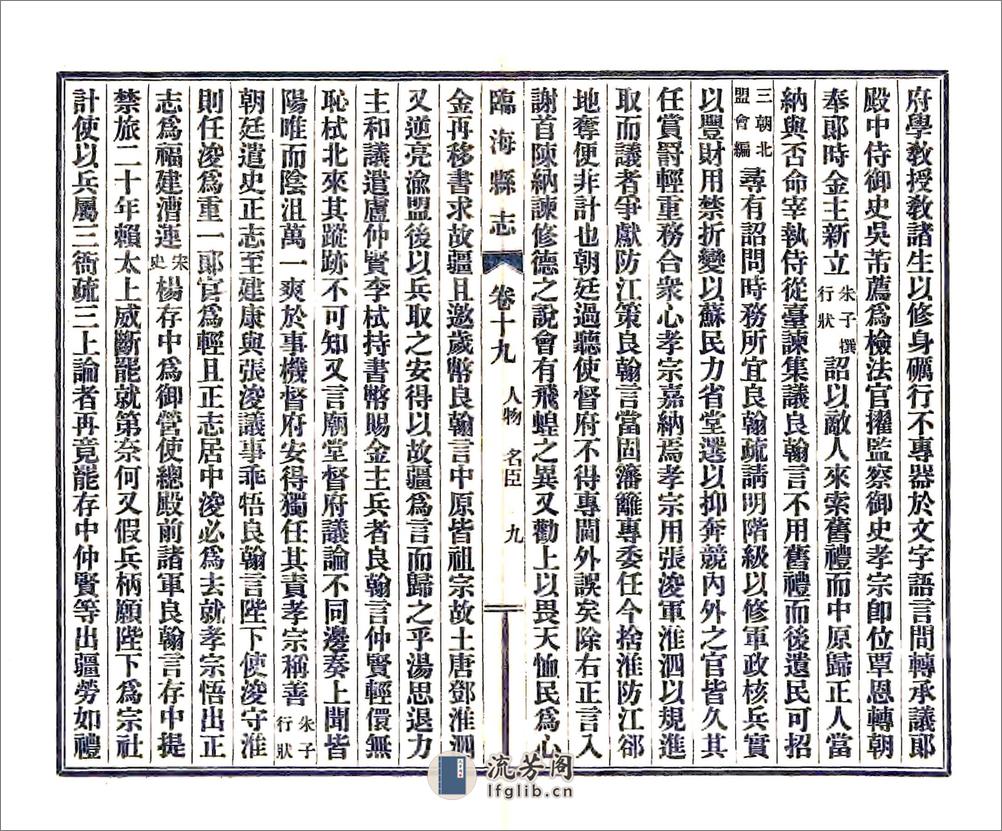 府學敎授敎諸生以修身礪行不專器於文字語言間轉承議郞
殿中侍御史吳芾薦爲檢法官擢監察御史孝宗卽位覃恩轉朝
奉郞時金主新立朱子撰行狀詔以敵人來索舊禮而中原歸正人當
納與否命宰執侍從臺諫集議良翰言不用舊禮而後遺民可招
三朝北盟會編尋有詔問時務所宜良翰疏請明階級以修軍政核兵實
以豐財用禁折變以蘇民力省堂選以抑奔競內外之官皆久其
任賞爵輕重務合衆心孝宗嘉納焉孝宗用張浚軍淮泗以規進
取而議者爭獻防江策良翰言當固藩籬專委任今捨淮防江郤
地奪便非計也朝廷過聽使督府不得專閫外誤矣除右正言入
謝首陳納諫修德之說會有飛蝗之異又勸上以畏天恤民爲心
臨海縣志 卷十九 人物 名臣 九
金再移書求故疆且邀歲幣良翰言中原皆祖宗故土唐鄧淮泗
又逆亮渝盟後以兵取之安得以故疆爲言而歸之乎湯思退力
主和議遣盧仲賢李栻持書幣賜金主兵者良翰言仲賢輕儇無
恥栻北來其蹤跡不可知又言廟堂督府議論不同邊奏上聞皆
陽唯而陰沮萬一爽於事機督府安得獨任其責孝宗稱善朱子行狀
朝廷遣史正志至建康與張浚議事乖牾良翰言陛下使浚守淮
則任浚爲重一郞官爲輕且正志居中浚必爲去就孝宗悟出正
志爲福建漕運宋史楊存中爲御營使總殿前諸軍良翰言存中提
禁旅二十年賴太上威斷罷就第奈何又假兵柄願陛下爲宗社
計使以兵屬三衙疏三上論者再竟罷存中仲賢等出疆勞如禮
流芳阁
lfglib.cn